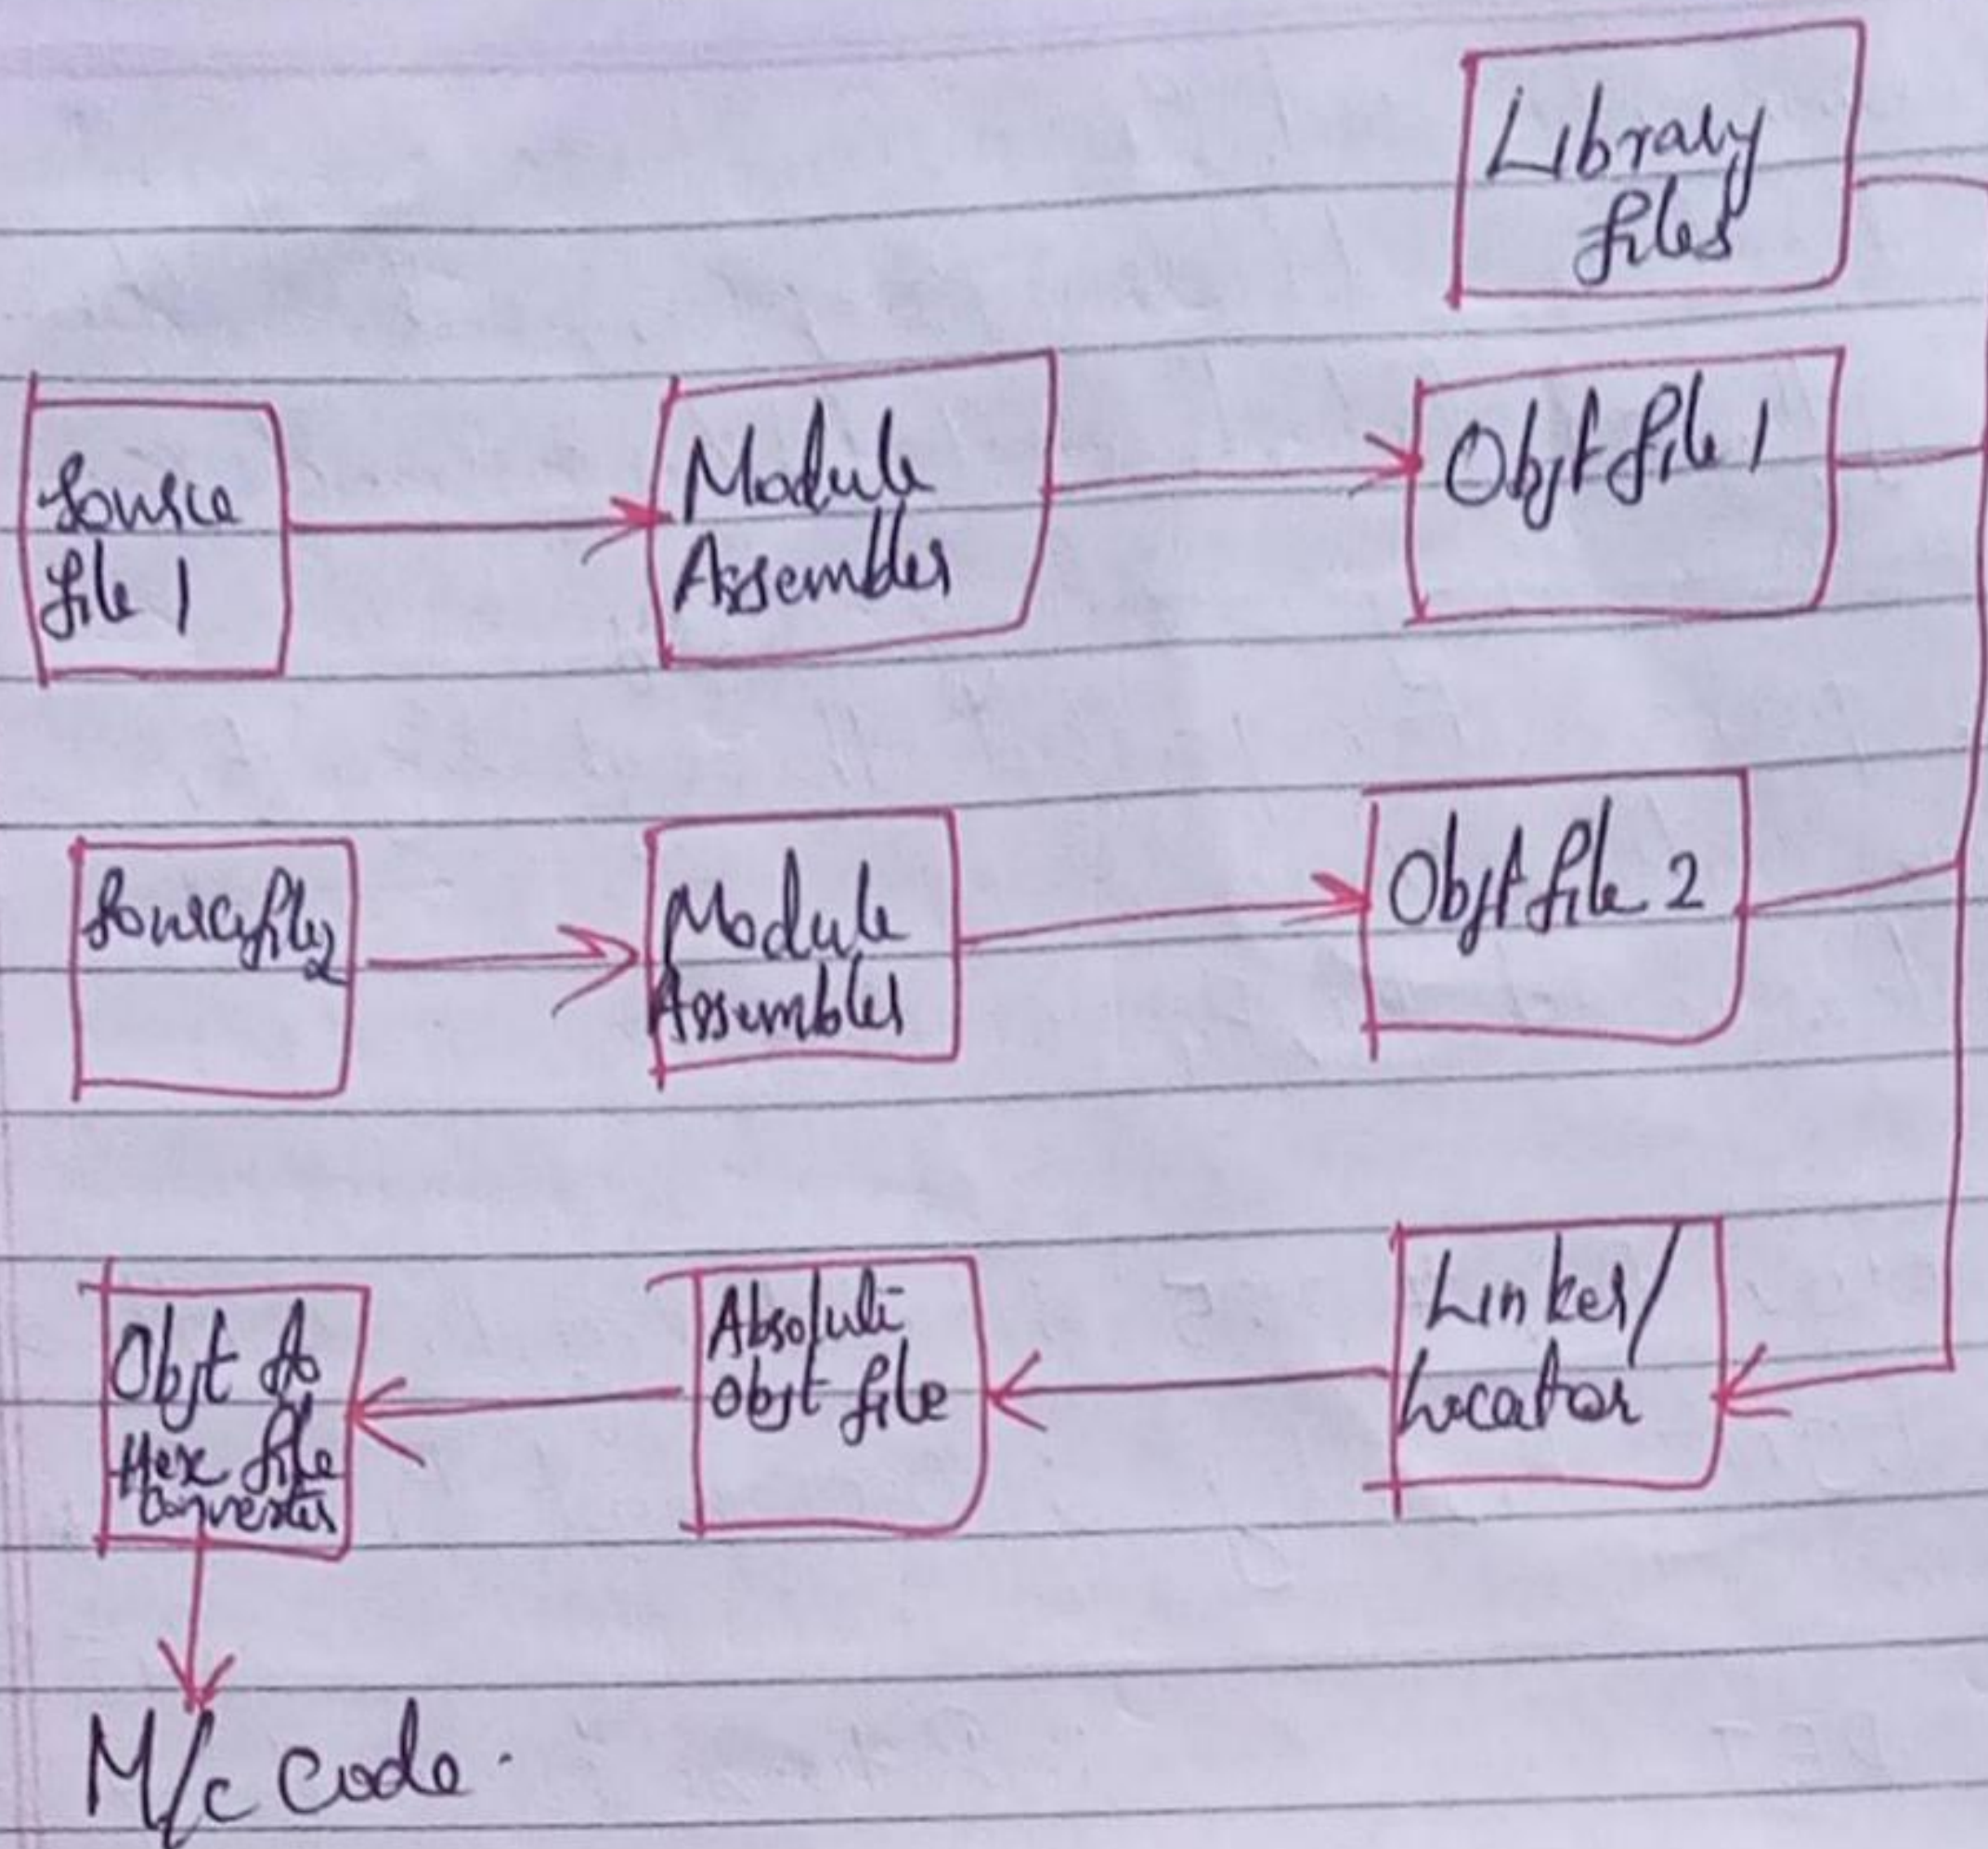 Library
files
Source
file 1
Module
Assembler
Objt file 1
Source file 2
Module
Assembler
Objt file 2
Objt to
Hex file
converter
Absolute
objt file
Linker/
Locator
M/c code.